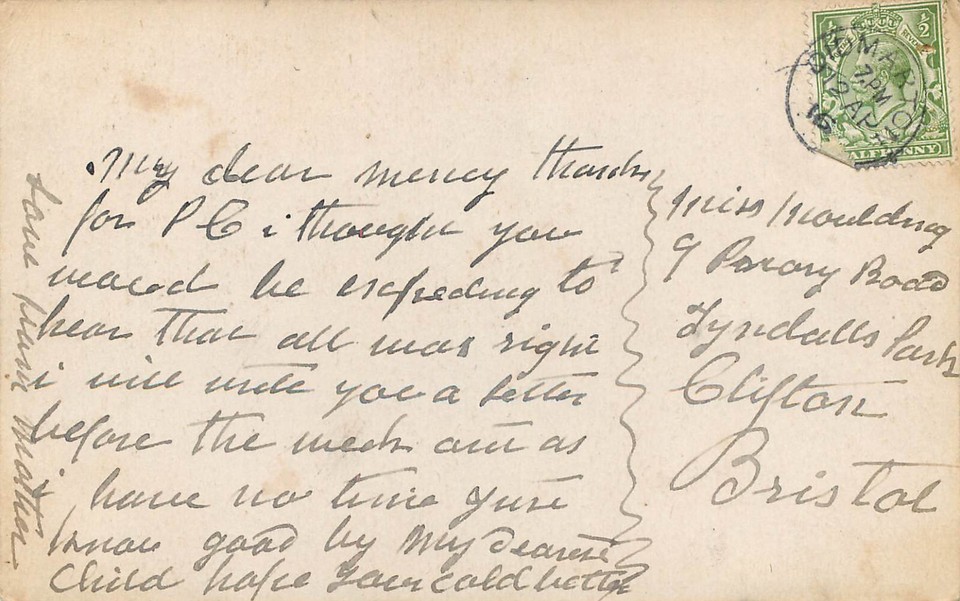 My dear mercy thanks
for P C i thought you
woued be exspeding to
hear that all was right
i will write you a letter
before the week out as
have no time just
know good by My Dearest
Child hope your cold better
Love from Mother
Miss Moulding
9 Priory Road
Tyndalls Park
Clifton
Bristol
7 PM
12 AP
16
½